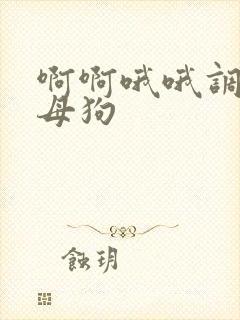 啊啊哦哦調
母狗
蝕玥